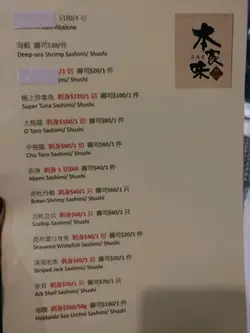 $180/4 切
Abalone
海蝦 壽司$30/件
Deep-sea Shrimp Sashimi/ Shushi
壽司$20/1 件
Sashimi/ Shushi
極上吞拿魚 刺身$120/1 切 壽司$100/1 件
Super Tuna Sashimi/ Shushi
大拖羅 刺身$100/1 切 壽司$80/1 件
O Toro Sashimi/ Shushi
中拖羅 刺身$80/1 切 壽司$60/1 件
Cho Toro Sashimi/ Shushi
赤身 刺身 1 切$60 壽司$40/1 件
Akami Sashimi/ Shushi
赤牡丹蝦 刺身$60/1 只 壽司$60/1 只
Botan Shrimp Sashimi/ Shushi
帆立貝 刺身$40/1 只 壽司$40/1 只
Scallop Sashimi/ Shushi
昆布漬白身魚 刺身$40/1 切 壽司$30/1 件
Seaweed Whitefish Sashimi/ Shushi
深海池魚 刺身$40/1 切 壽司$20/1 件
Striped Jack Sashimi/ Shushi
赤貝 刺身$70/1 只 壽司$70/1 只
Ark Shell Sashimi/ Shushi
海膽 刺身$350/50g 壽司$100/1 件
Hokkaido Sea Urchin Sashimi/ Shushi
本家味